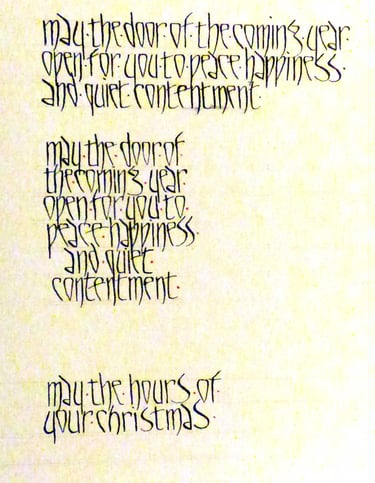 may·the·door·of·the·coming·year·
open·for·you·to·peace·happiness·
and·quiet·contentment·
may·the·door·of
the·coming·year·
open·for·you·to·
peace·happiness·
and·quiet
contentment·
may·the·hours·of·
your·christmas·